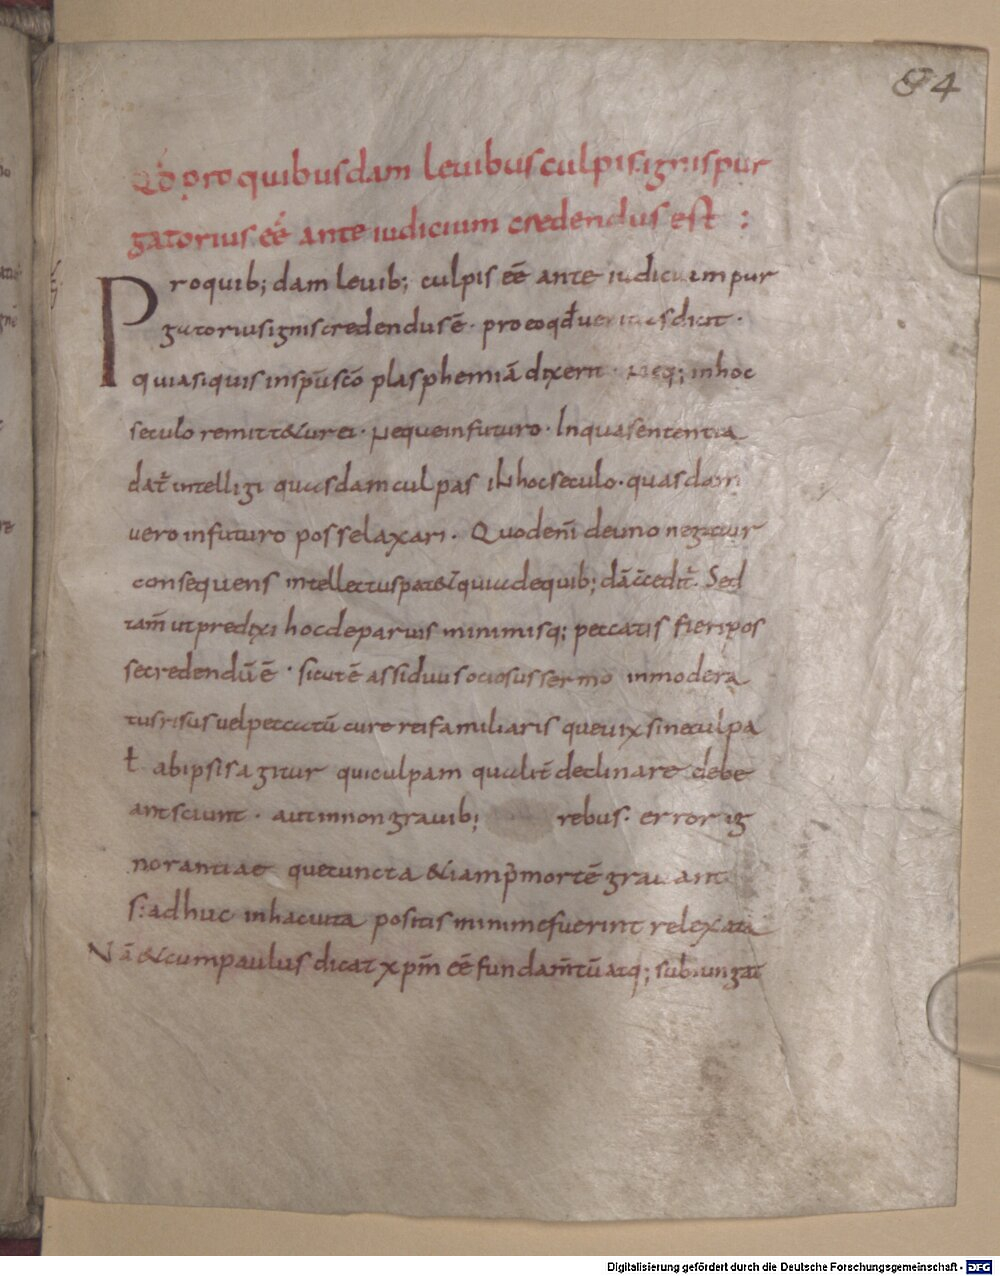 84
Qđ pro quibusdam leuibus culpis ignis pur
gatorius eē ante iudicium credendus est :
Proquib; dam leuib; culpis eē ante iudicium pur
gatorius ignis credendus ē · pro eo qđ ueritas dicit ·
quia siquis in sp̄u scō plasphemiā dixerit · Neq; in hoc
seculo remittetur ei · Neque in futuro · In qua sententia
dat̄ intelligi quasdam culpas in hoc seculo · quasdam
uero in futuro posse laxari · Quod enī de uno negatur
consequens intellectus patet quia de quib; dā c̄cedit̄. Sed
tam̄ ut predixi hoc de paruis minimisq; peccatis fieri pos
se credendū ē · sicut ē assiduus ociosus sermo inmodera
tus risus uel peccatū cure rei familiaris que uix sine culpa
ł ab ipsis agitur qui culpam qualit̄ declinare debe
ant sciunt · aut in non grauib; rebus · error ig
norantiae que cuncta & iam p̄ mortē grauant
si adhuc in hac uita positis minime fuerint relexata
Nā & cum paulus dicat xpm̄ eē fundam̄tū atq; subiungat
Digitalisierung gefördert durch die Deutsche Forschungsgemeinschaft - DFG